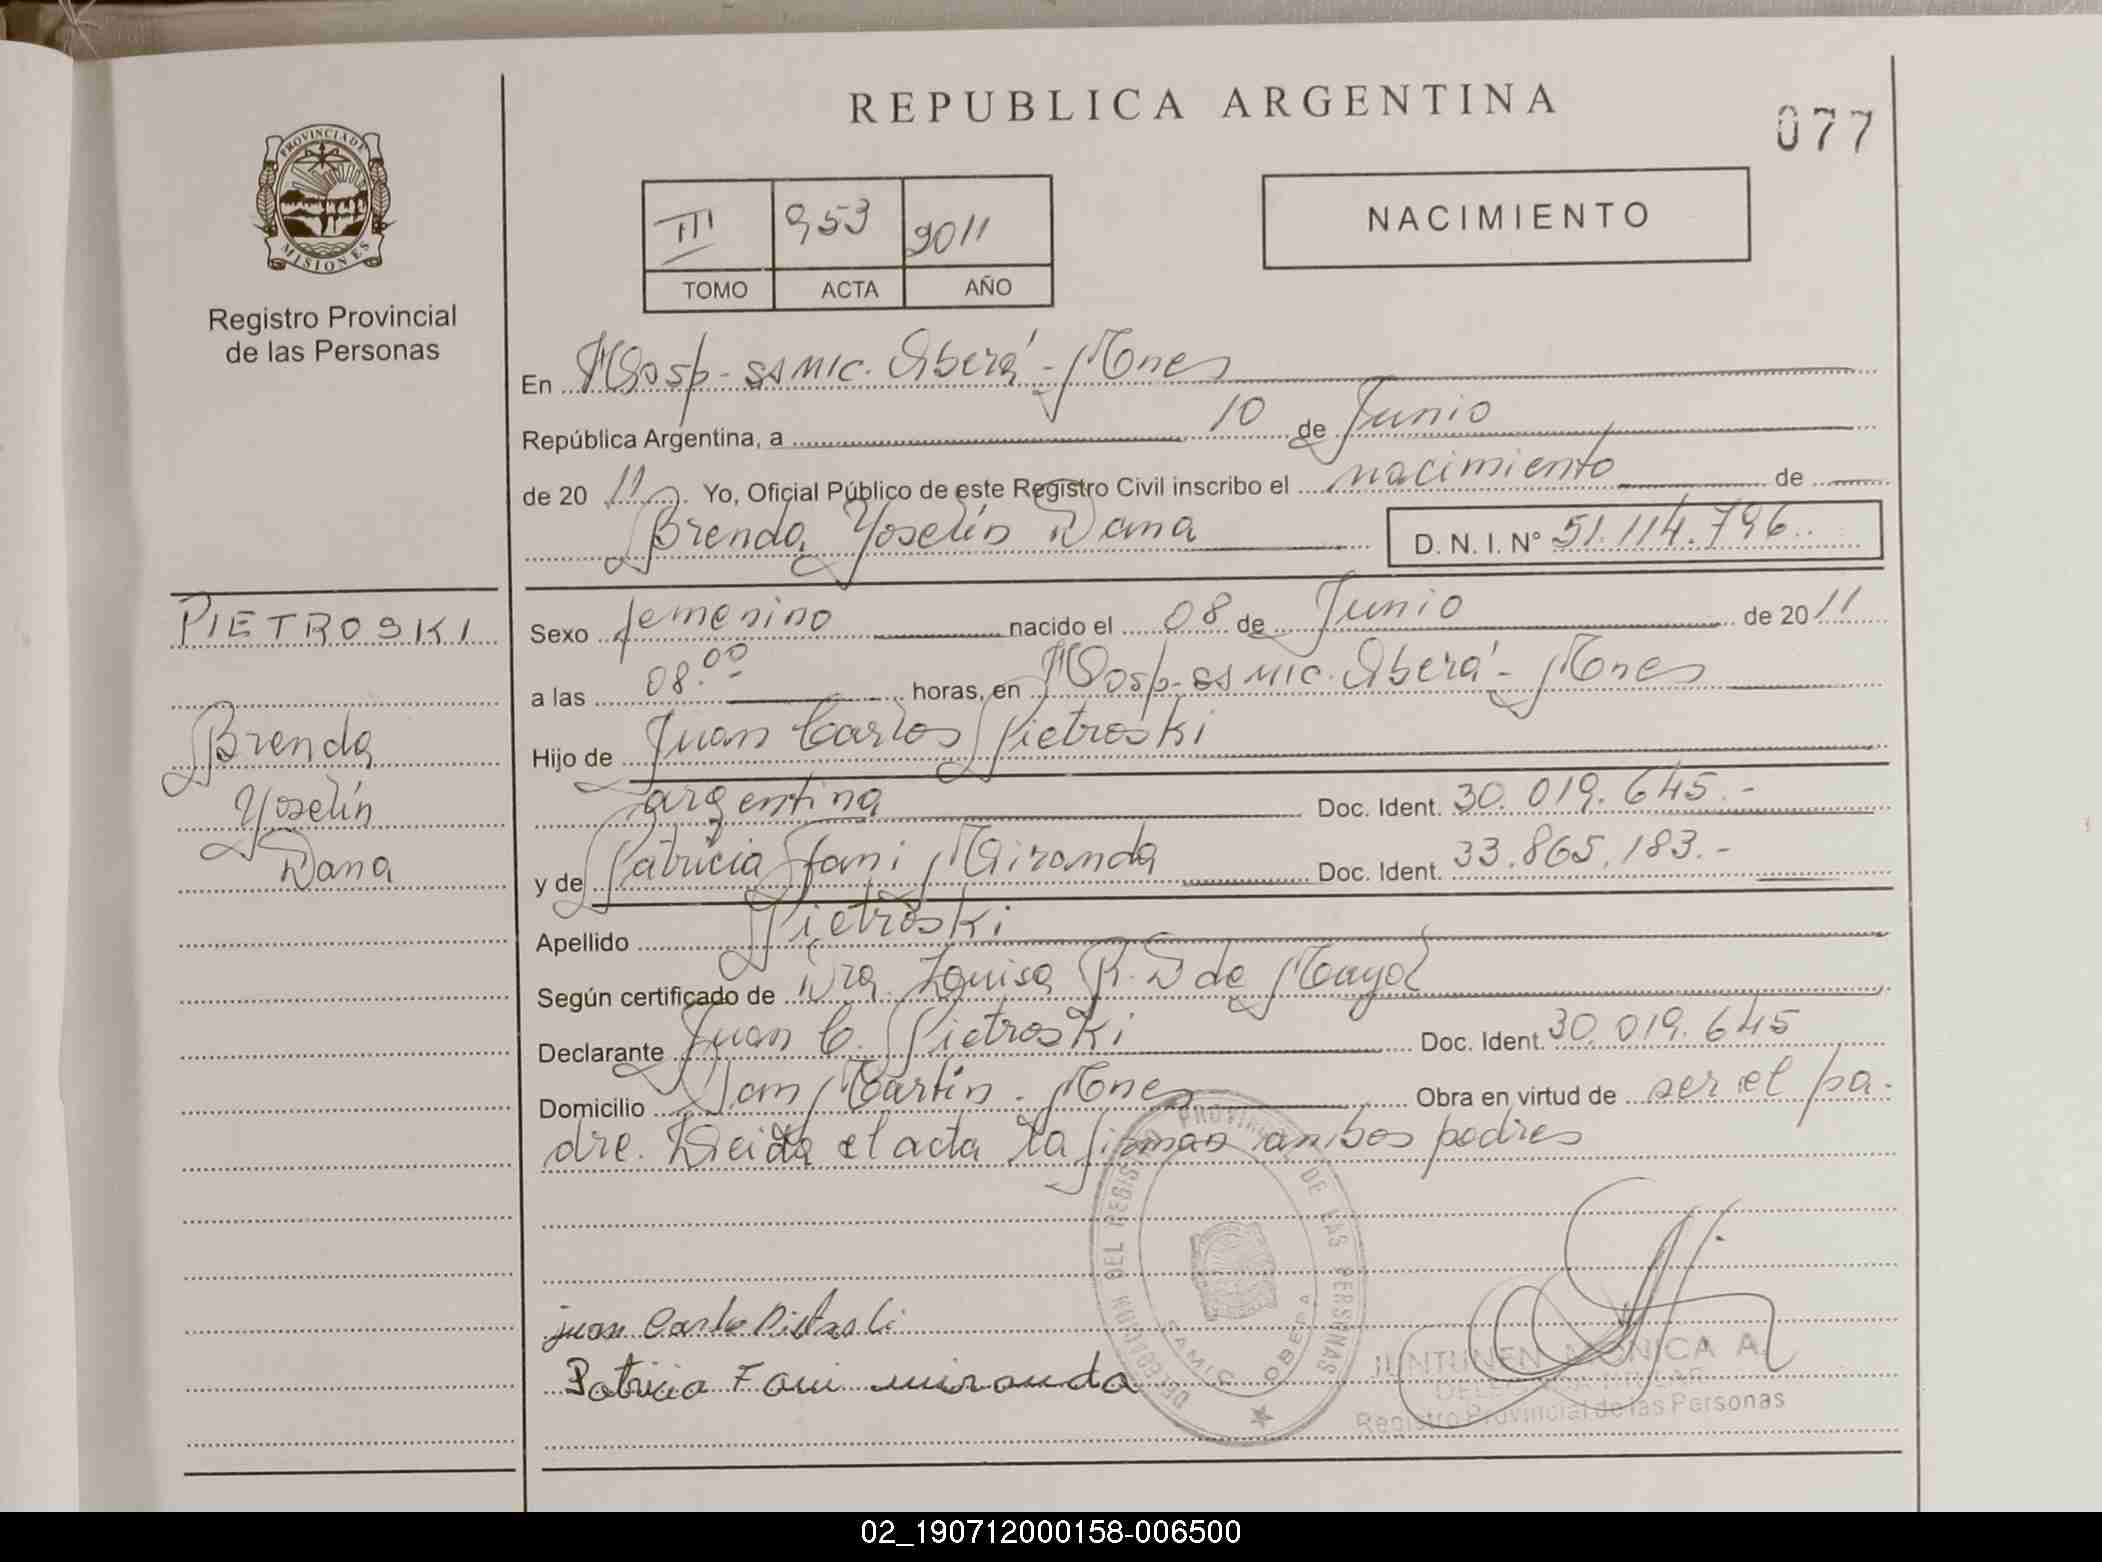 REPUBLICA ARGENTINA
077
PROVINCIA DE
MISIONES
Registro Provincial
de las Personas
III 953 2011
TOMO ACTA AÑO
NACIMIENTO
En Hosp. SAMIC. Oberá - Mnes
República Argentina, a 10 de Junio
de 20 11 . Yo, Oficial Público de este Registro Civil inscribo el nacimiento de
Brenda Yoselín Dana D. N. I. N° 51.114.796.
PIETROSKI
Brenda
Yoselín
Dana
Sexo femenino nacido el 08 de Junio de 20 11
a las 08:00 horas, en Hosp. SAMIC. Oberá - Mnes
Hijo de Juan Carlos Pietroski
argentina Doc. Ident. 30.019.645.-
y de Patricia Fani Miranda Doc. Ident. 33.865.183.-
Apellido Pietroski
Según certificado de Dra. Luisa R. D de Mayol
Declarante Juan C. Pietroski Doc. Ident. 30.019.645
Domicilio San Martín - Mnes Obra en virtud de ser el pa-
dre. Leida el acta la firman ambos padres
juan Carlo Pietroski
Patricia Fani miranda
DELEGACION DEL REGISTRO PROVINCIAL DE LAS PERSONAS
SAMIC OBERA
JUNTUNEN MONICA A.
DELEGADA TITULAR
Registro Provincial de las Personas
02_190712000158-006500